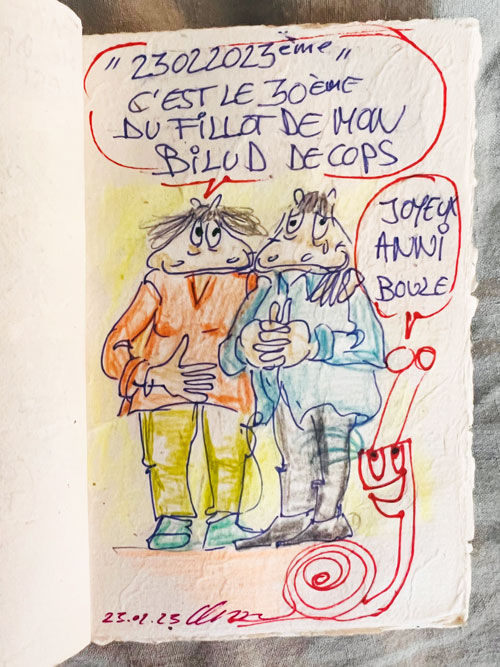 "23022023ème"
C'EST LE 30ÈME
DU FILLOT DE MON
BILUD DECOPS
JOYEUX
ANNI
BOUZE
23.02.23